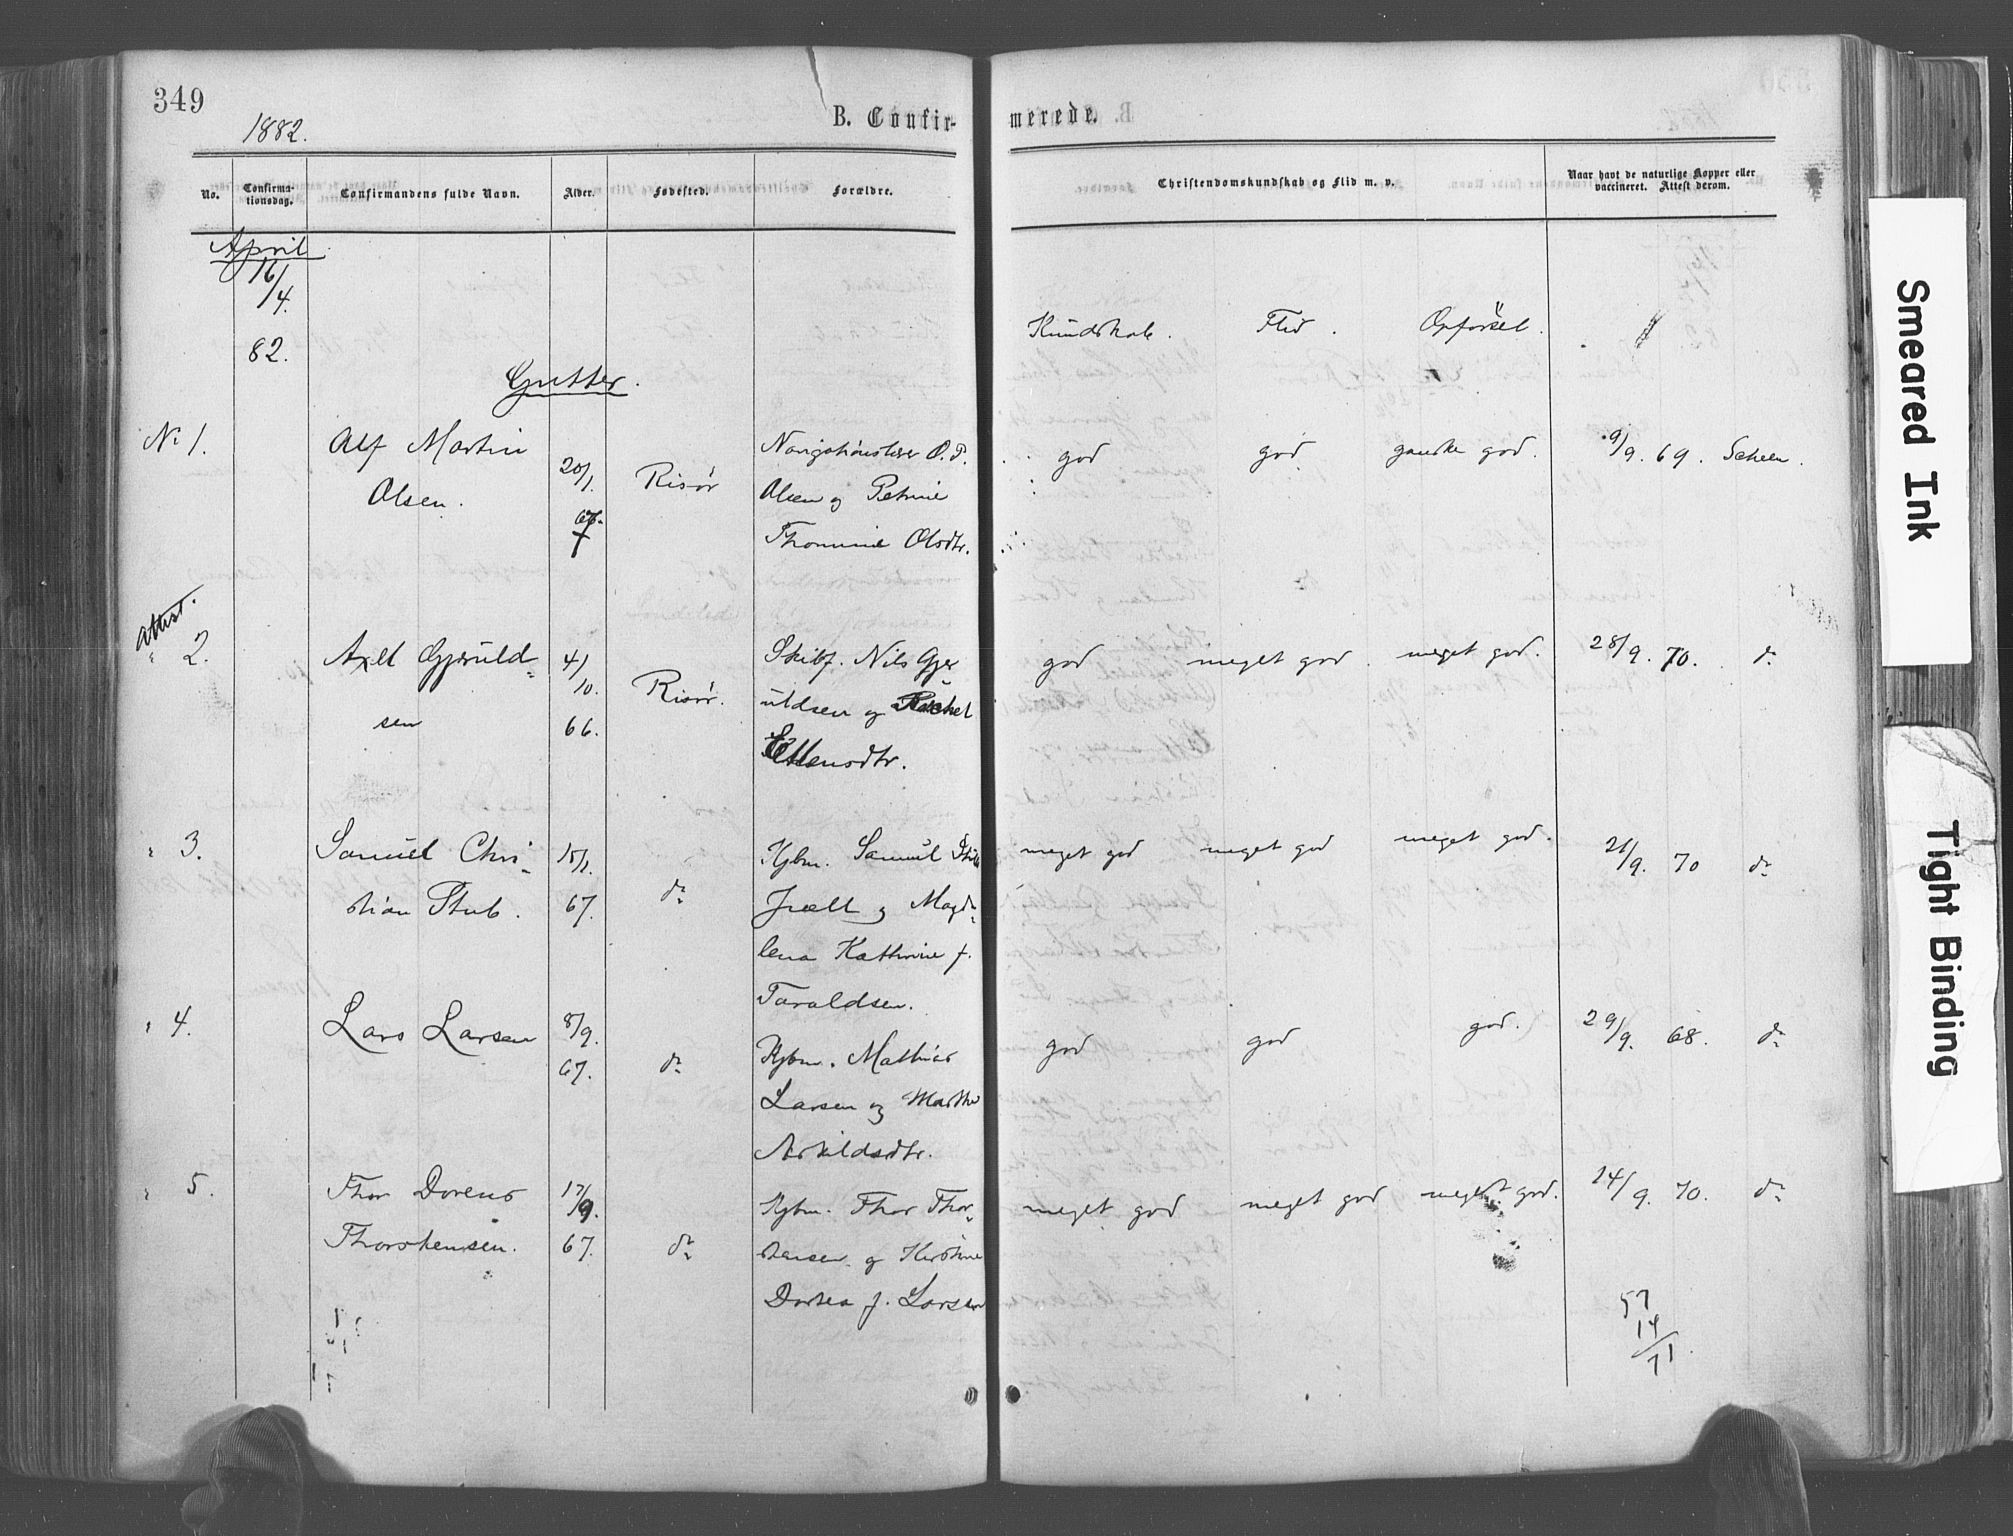 349
1882.
B. Confir-
merede.
No.
Confirma-
tionsdag.
Confirmandens fulde Navn.
Alder.
Fødested.
Forældre.
Christendomskundskab og Flid m. v.
Naar havt de naturlige Kopper eller
vaccineret. Attest derom.
April
16/4.
82.
Kundskab. Flid. Opførsel.
Gutter.
No 1.
Alf Martin
Olsen.
20/1.
67.
Risør
O. P.
Olsen og Petrine
Thomine Olsdtr.
god god ganske god. 9/9. 69. Scheen.
Attest.
" 2.
Axel Gjeruld-
sen
4/10.
66.
Risør.
Skibf. Nils Gjer
uldsen og Rachel
Ellensdtr.
god meget god meget god. 28/9. 70. do
" 3.
Samuel Chri-
stian Stub.
15/1.
67.
do
Kjbm. Samuel Stub
Juell og Magda-
lena Kathrine f.
Taraldsen.
meget god meget god meget god. 21/9. 70 do
" 4.
Lars Larsen
8/9.
67.
do
Kjbm. Mathias
Larsen og Marthe
Askildsdtr.
god god god. 29/9. 68. do
" 5.
Thor Dorens
Thorstensen.
17/9.
67.
do
Kjbm. Thor Thor-
stensen og Kirstine
Dorthea f. Larsen
meget god meget god meget god. 14/9. 70. do
57
14
71
Smeared Ink
Tight Binding